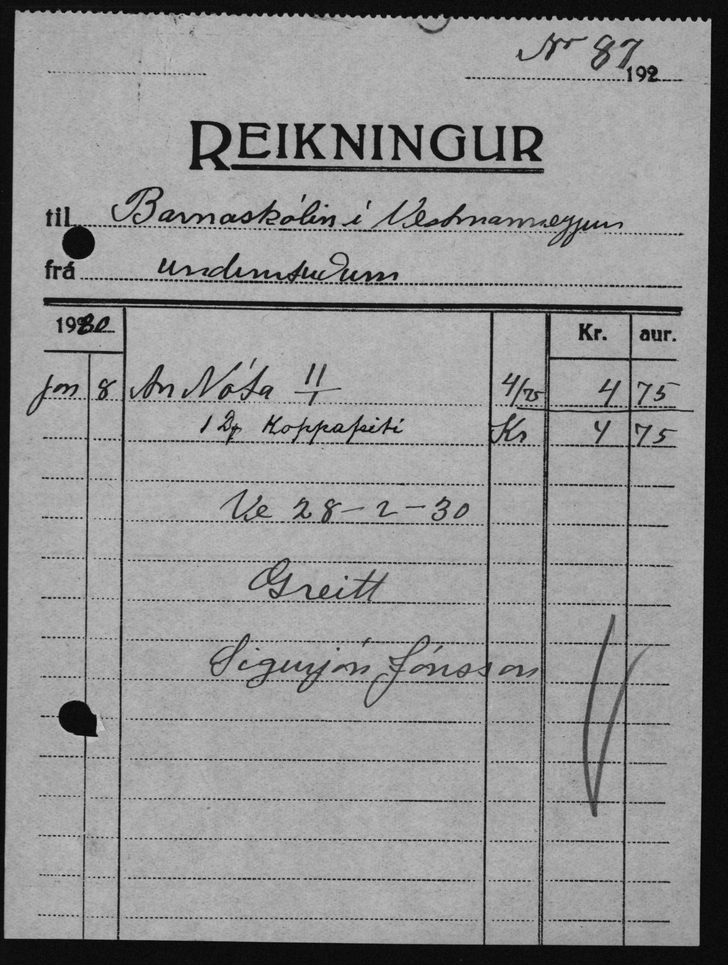 Nr 87
192
REIKNINGUR
til Barnaskólin í Vestmannaeyjum
frá undirrituðum
1930 Kr. aur.
Jan 8 An Nóta 11/1 4/75 4 75
1 Kr 4 75
Ve 28-2-30
Greitt
Sigurjón Jónsson